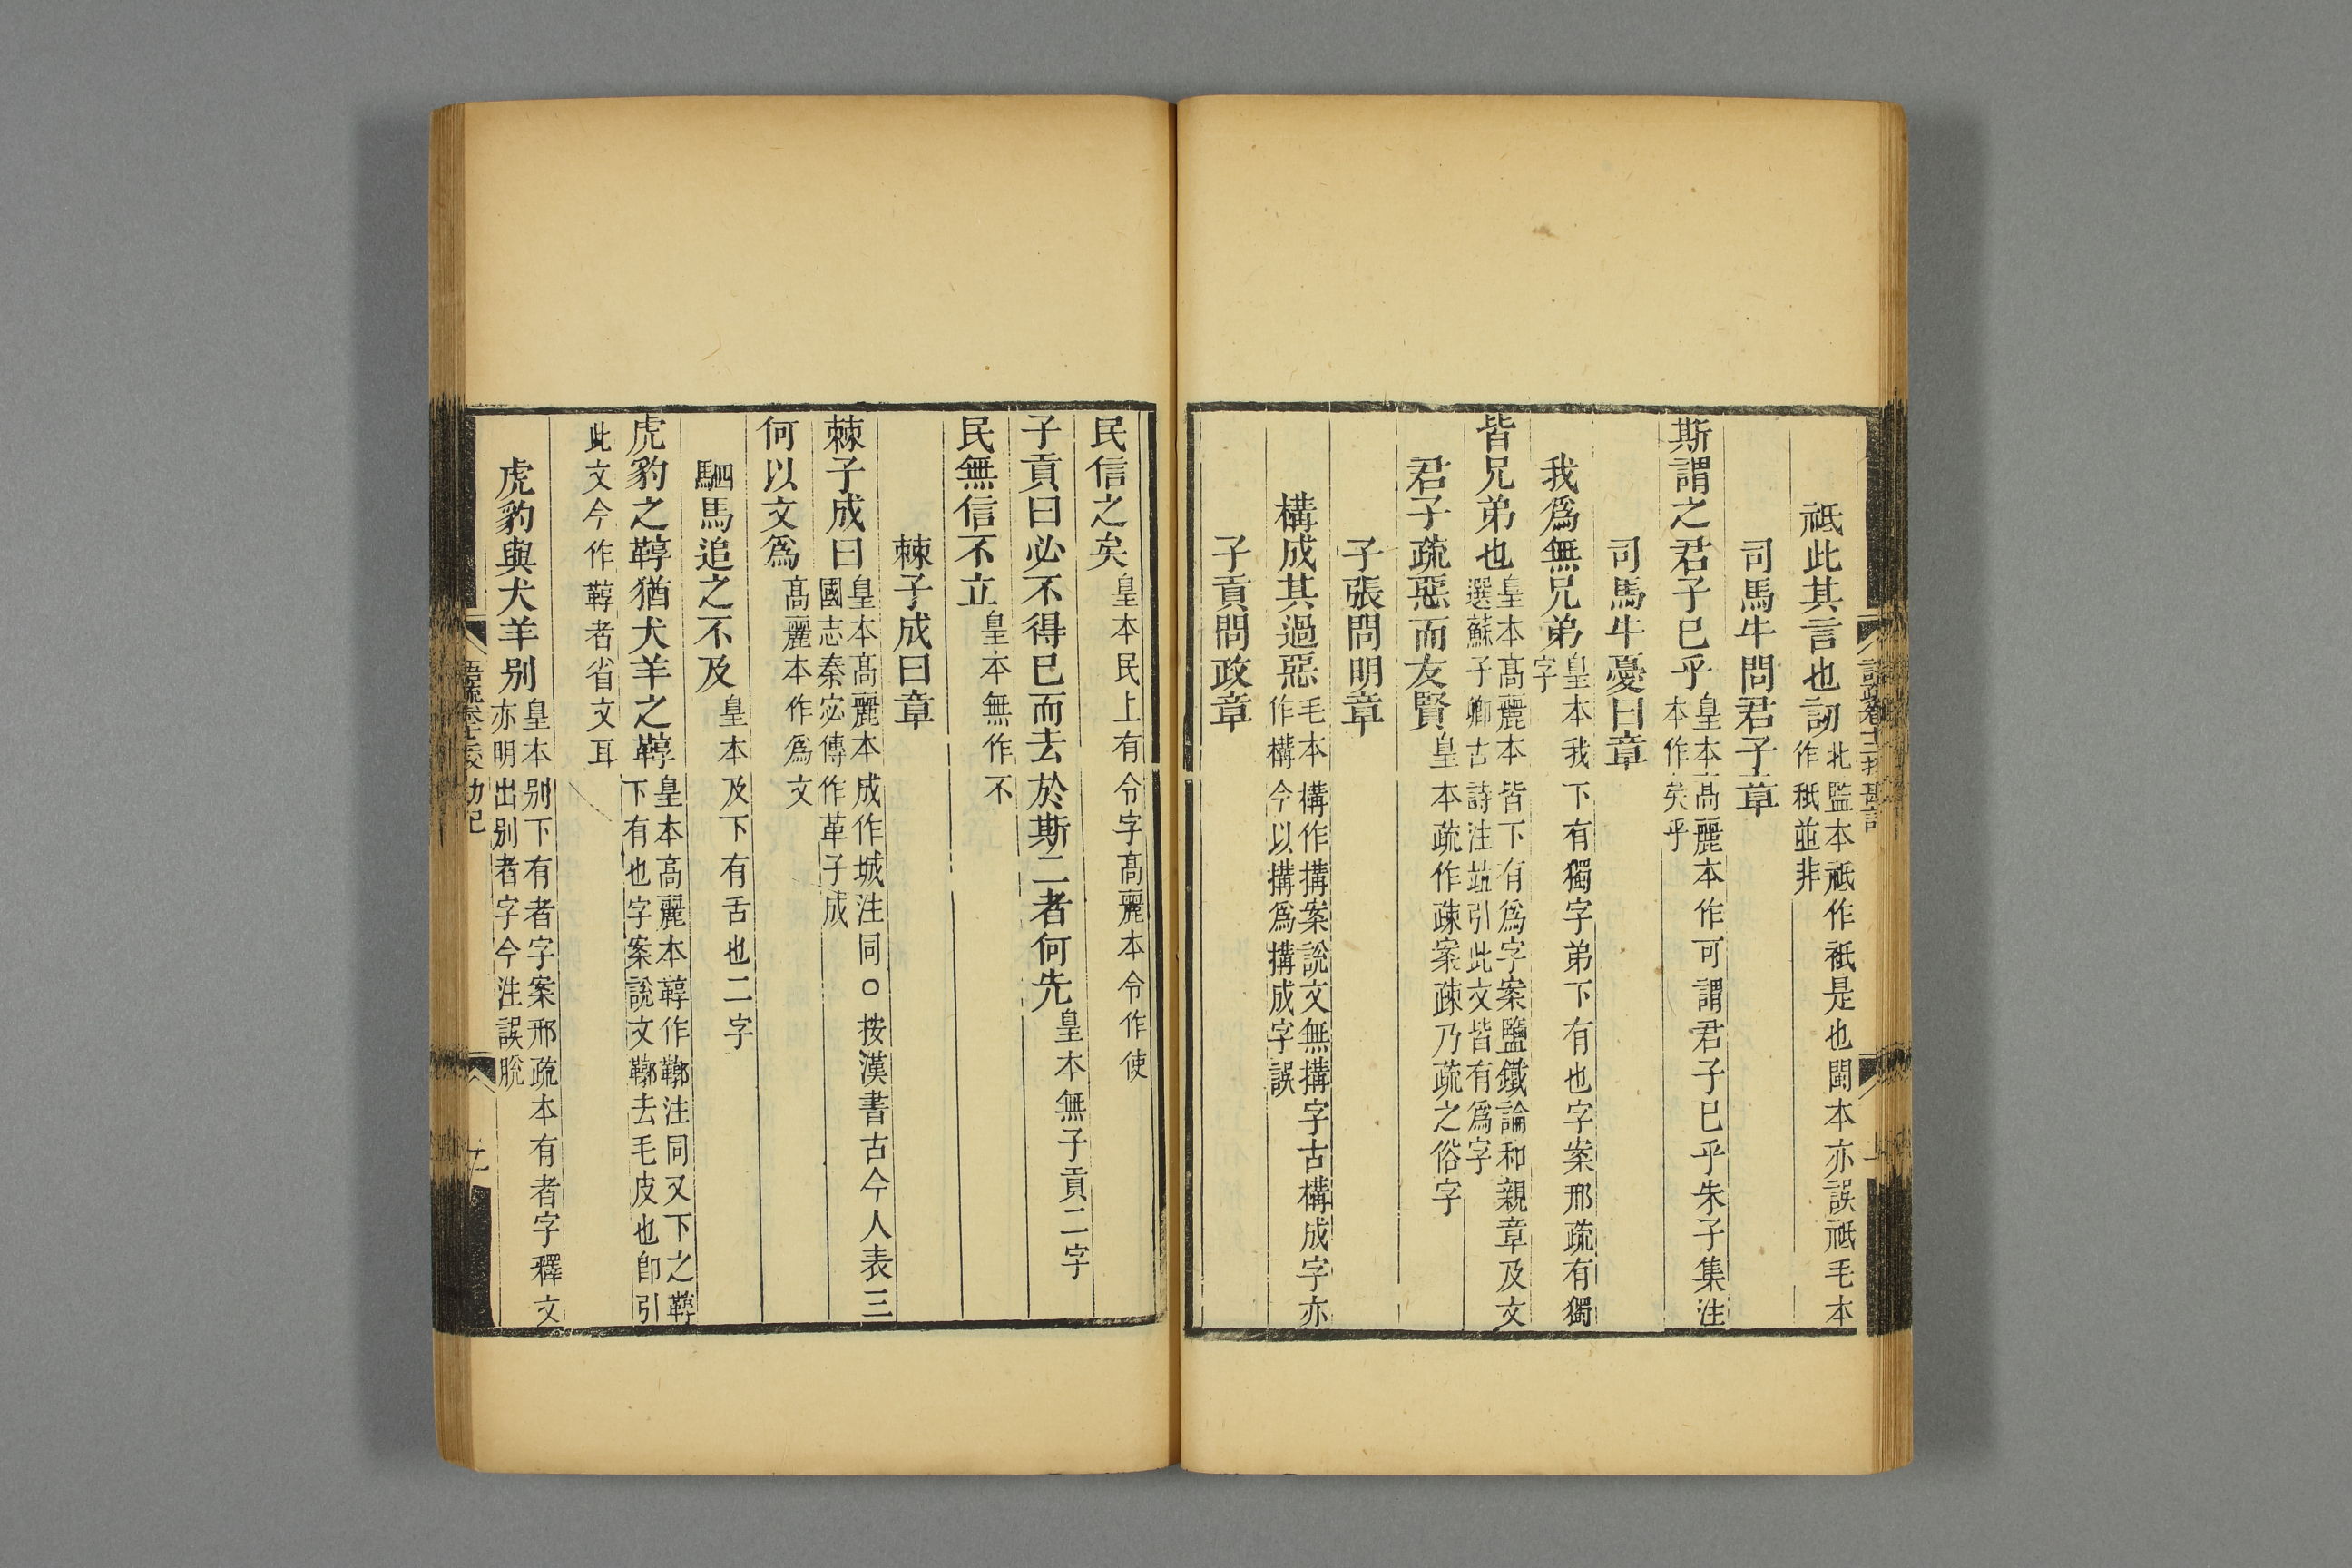 祗此其言也訒北監本祗作衹是也閩本亦誤祗毛本作秖並非
司馬牛問君子章
斯謂之君子已乎皇本高麗本作可謂君子已乎朱子集注本作矣乎
司馬牛憂曰章
我爲無兄弟皇本我下有獨字弟下有也字案邢疏有獨字
皆兄弟也皇本高麗本皆下有爲字案鹽鐵論和親章及文選蘇子卿古詩注竝引此文皆有爲字
君子疏惡而友賢皇本疏作疎案疎乃疏之俗字
子張問明章
構成其過惡毛本構作搆案說文無搆字古構成字亦作構今以搆爲搆成字誤
子貢問政章
民信之矣皇本民上有令字高麗本令作使
子貢曰必不得已而去於斯二者何先皇本無子貢二字
民無信不立皇本無作不
棘子成曰章
棘子成曰皇本高麗本成作城注同○按漢書古今人表三國志秦宓傳作革子成
何以文爲高麗本作爲文
駟馬追之不及皇本及下有舌也二字
虎豹之鞟猶犬羊之鞟皇本高麗本鞟作鞹注同又下之鞹下有也字案說文鞹去毛皮也卽引
此文今作鞟者省文耳
虎豹與犬羊别皇本别下有者字案邢疏本有者字釋文亦明出别者字今注誤脫